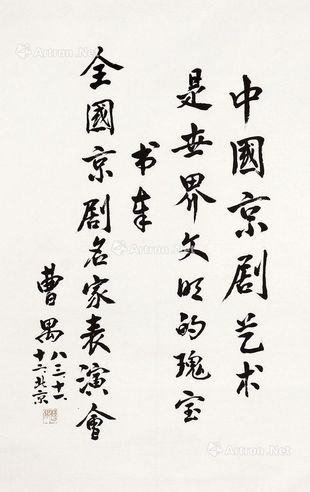 中國京剧艺术
是世界文明的瑰宝
书奉
全國京剧名家表演會
曹禺
八三十一
十六北京
Artron.Net